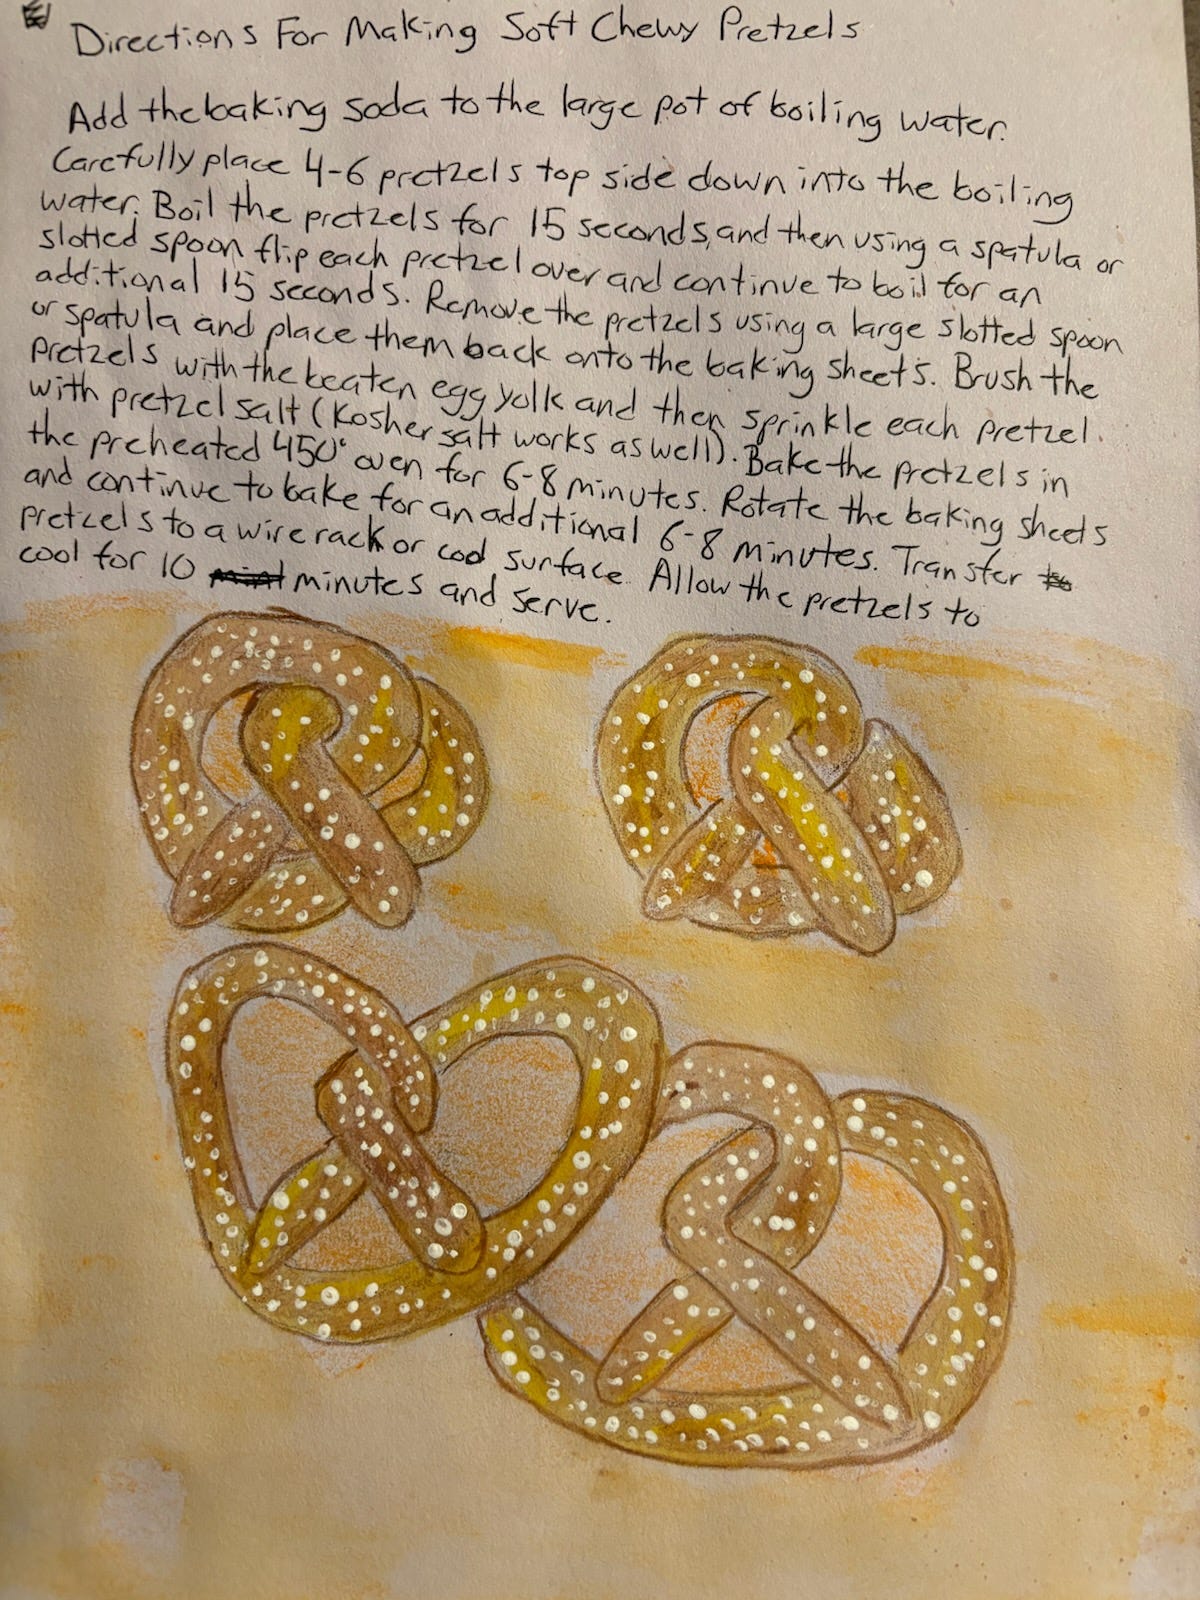 Directions For Making Soft Chewy Pretzels
Add the baking soda to the large pot of boiling water.
Carefully place 4-6 pretzels top side down into the boiling
water. Boil the pretzels for 15 seconds, and then using a spatula or
slotted spoon flip each pretzel over and continue to boil for an
additional 15 seconds. Remove the pretzels using a large slotted spoon
or spatula and place them back onto the baking sheets. Brush the
pretzels with the beaten egg yolk and then sprinkle each pretzel.
with pretzel salt (Kosher salt works as well). Bake the pretzels in
the preheated 450° oven for 6-8 minutes. Rotate the baking sheets
and continue to bake for an additional 6-8 minutes. Transfer
pretzels to a wire rack or cool surface. Allow the pretzels to
cool for 10 minutes and serve.